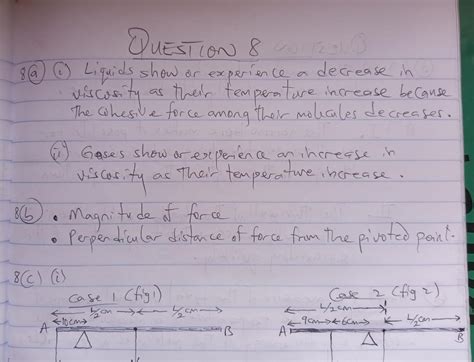 QUESTION 8
8(a) (i) Liquids show or experience a decrease in
viscosity as their temperature increase because
the cohesive force among their molecules decreases.
(ii) Gases show or experience an increase in
viscosity as their temperature increase.
8(b) • Magnitude of force
• Perpendicular distance of force from the pivoted point.
8(c) (i)
Case 1 (fig 1)
L/2 cm L/2 cm
10cm
A B
Case 2 (fig 2)
L/2cm L/2 cm
9cm 6cm
A B